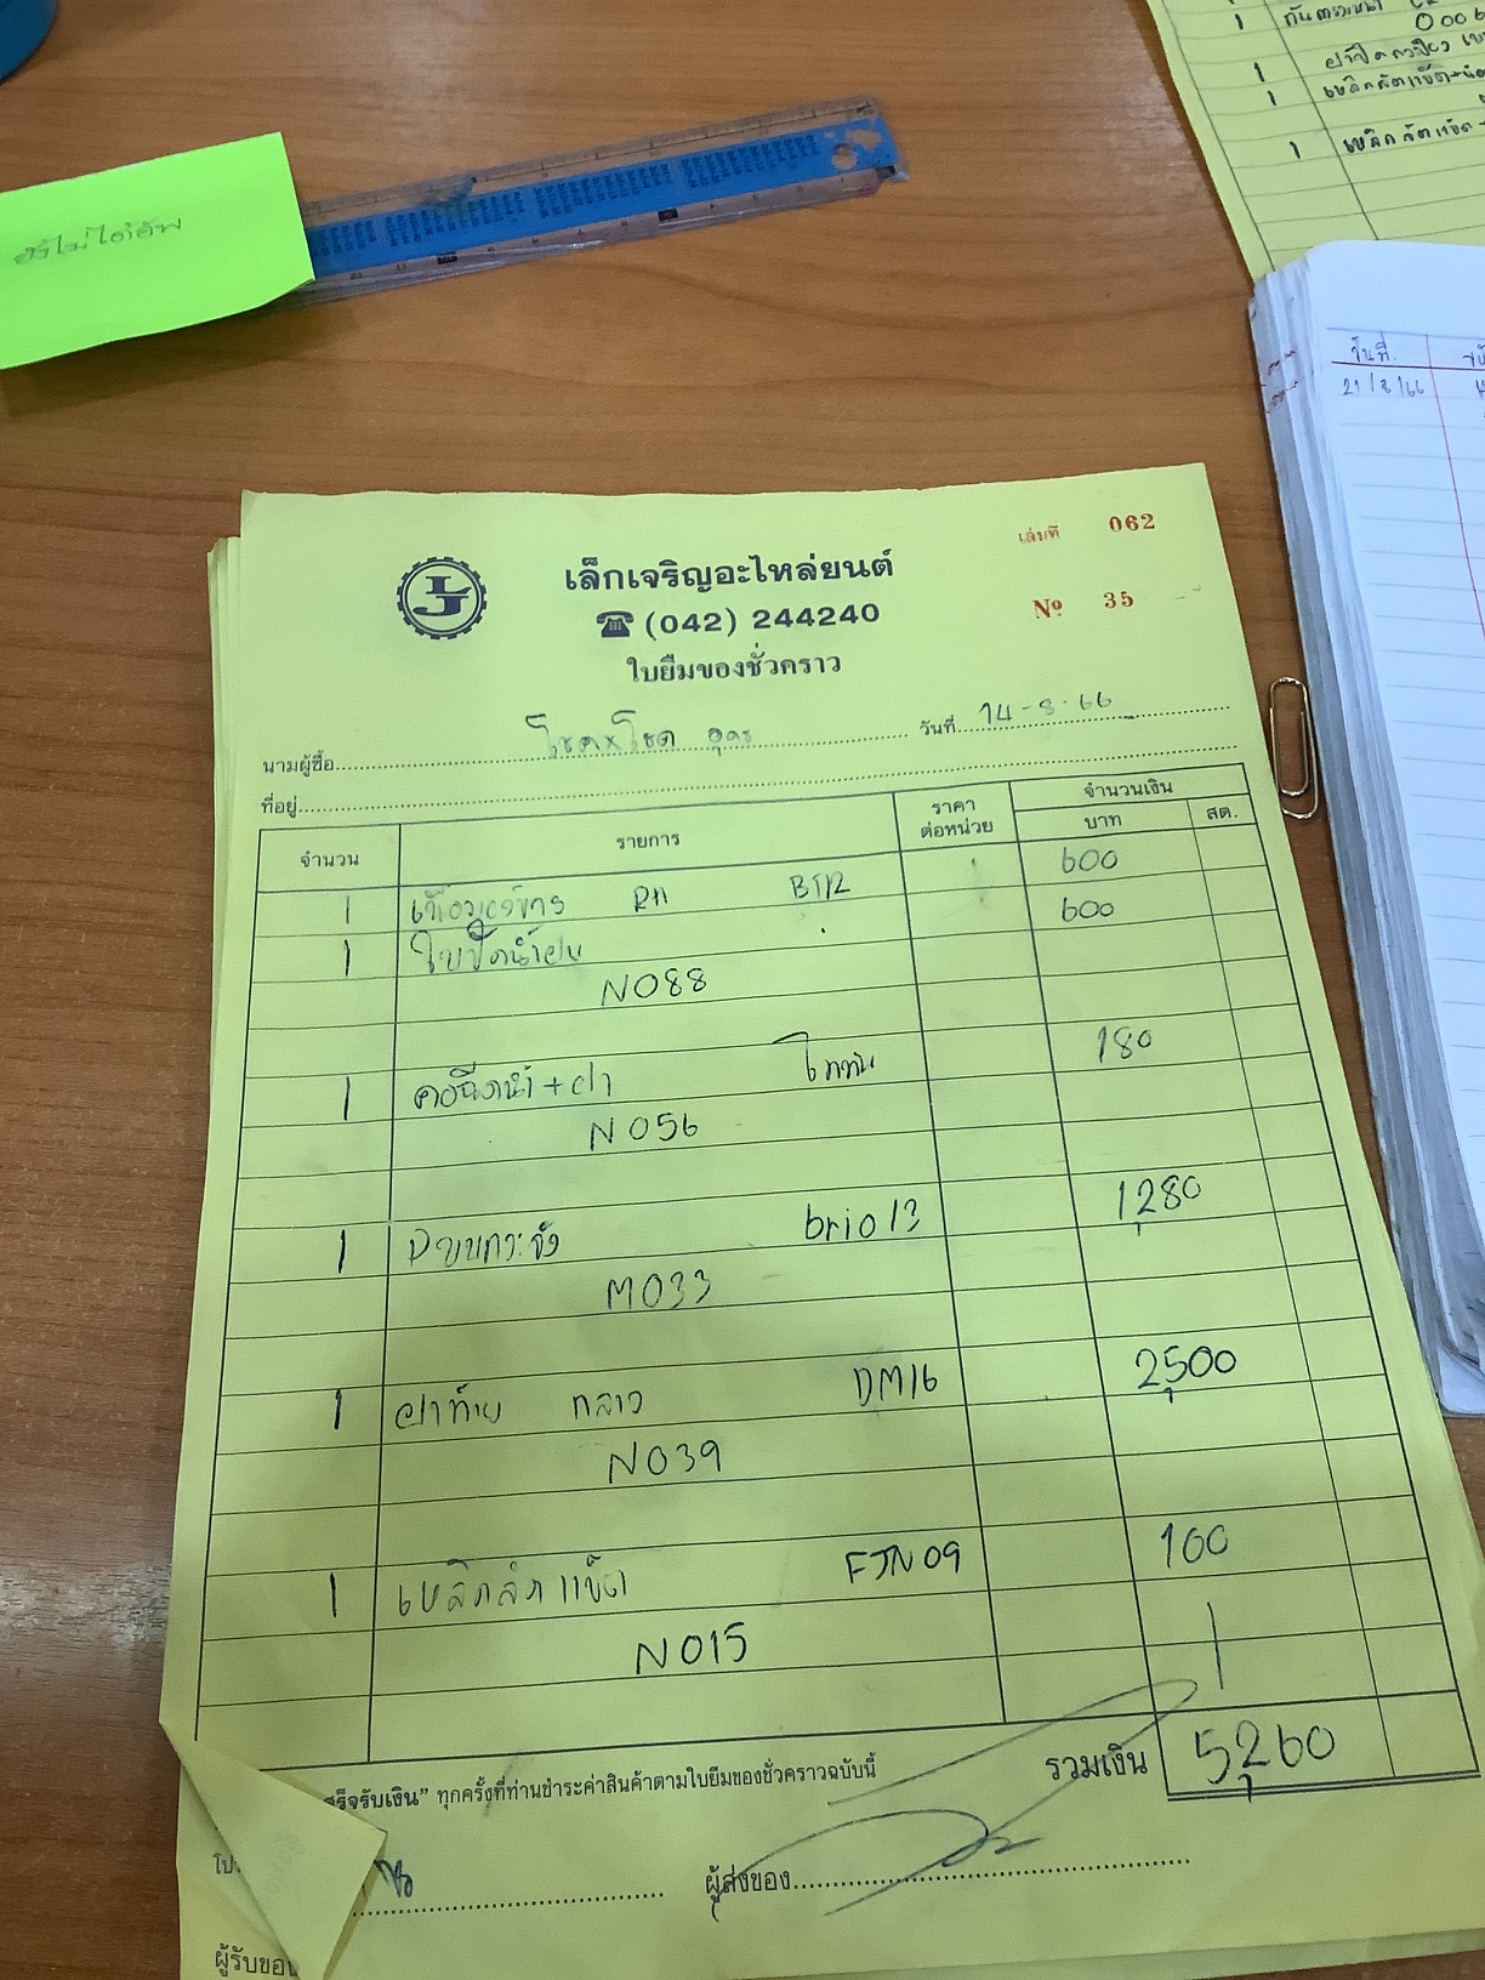 1
0006
1
1
1
วันที่.
21/8/66
ยังไม่ได้อัพ
เล่มที่ 062
เล็กเจริญอะไหล่ยนต์
(042) 244240
Nº 35
ใบยืมของชั่วคราว
นามผู้ซื้อ โชคxโชค อุดร วันที่ 14-8-66
ที่อยู่
จำนวน รายการ ราคาต่อหน่วย จำนวนเงิน
บาท สต.
1 RH BT12 600
1 ใบปัดน้ำฝน 600
N088
1 คอฉีดน้ำ+ฝา ไททัน 180
N056
1 กระจัง brio13 1280
M033
1 ฝาท้าย กลาง DM16 2,500
N039
1 เหล็กล็อกแข็ต FJN09 100
N015
รวมเงิน 5,260
สร็จรับเงิน” ทุกครั้งที่ท่านชำระค่าสินค้าตามใบยืมของชั่วคราวฉบับนี้
ผู้ส่งของ
ผู้รับของ